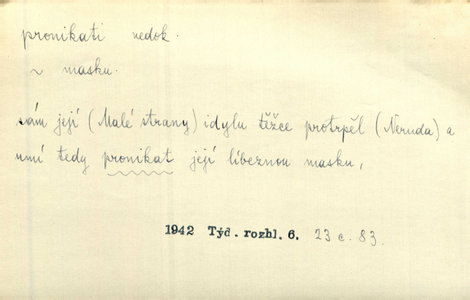 pronikati nedok.
~ masku.
sám její (Malé strany) idylu těžce protrpěl (Neruda) a
umí tedy pronikat její líbeznou masku,
1942 Týd. rozhl. 6. 23 c. 83.